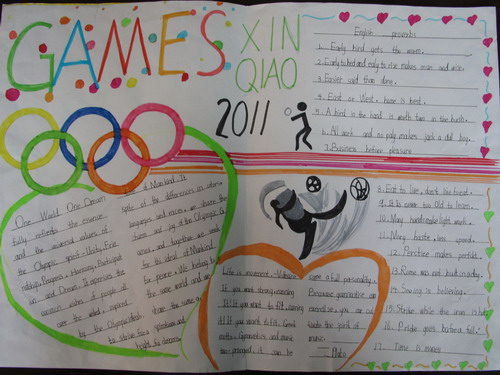 GAMES
XIN
QIAO
2011
English proverbs
1. Early bird gets the worm.
2. Early to bed and early to rise makes man wise.
3. Easier said than done.
4. East or West, home is best.
5. A bird in the hand is worth two in the bush.
6. All work and no play makes jack a dull boy.
7. Business before pleasure
8. Eat to live, don't live to eat.
9. It is never too Old to learn.
10. Many hands make light work.
11. More haste, less speed.
12. Practice makes perfect.
13. Rome was not built in a day.
14. Seeing is believing.
15. Strike while the iron is hot
16. Pride goes before a fall.
17. Time is money
One World One Dream
fully reflects the essence
and the universal values of
the Olympic spirit—Unity, Frie
ndship, Progress, Harmony, Participat
ion and Dream. It expresses the
common wishes of people all
over the world, inspired
by the Olympic ideals,
to strive for a
bright
of Mankind. In
spite of the differences in colors,
languages and races, we share the
charm and joy of the Olympic Ga
mes, and together we seek
for the ideal of Mankind
for peace. We belong to
the same world and we
share the same
Life is movement.
If you want strong, running
it! If you want to fit, running
it! If you want to
Gymnastics and music
it can be
a full personality.
Because gymnastics can
music.
Plato